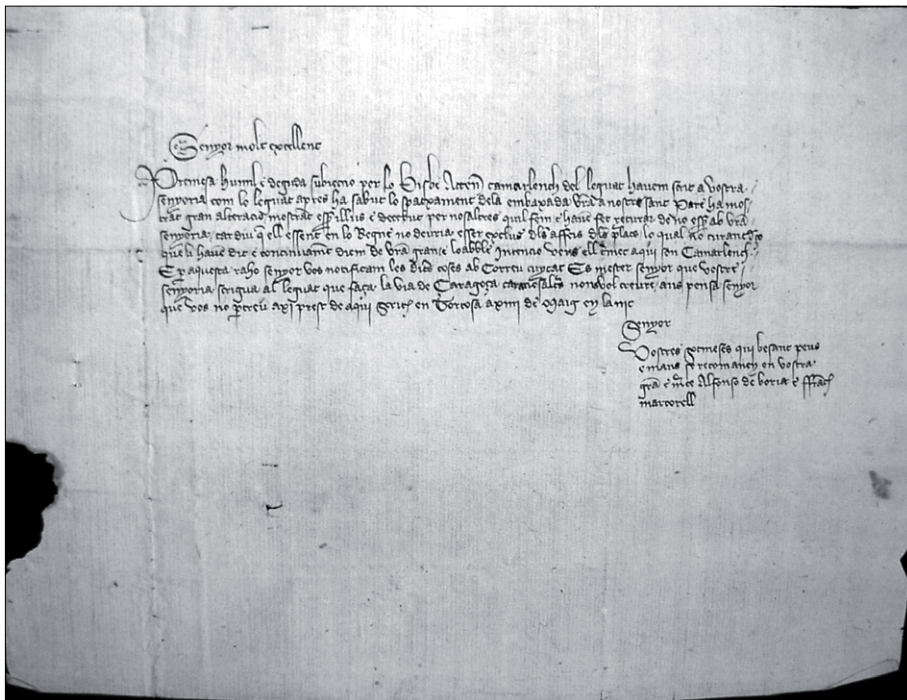 Senyor molt excellent
Premesa humil e deguda subieccio per lo Bisbe camarlench del leguat havem scrit a vostra
senyoria com lo leguat apres ha sabut lo spatxament dela embaxada vrã a nostre sant Pare ha mos
trat gran alteracio mostrat esser illus e decebut per nosaltres quil fem e havem fet recurar de no esser ab vrã
senyoria car diu q̃ ell essent en lo Regne no devria esser exclus dels affers dels prelats lo qual no
que li havem dit e continuament diem de vrã gran e loable Intencio vers ell tramet aqui son Camarlench
E per aquesta raho senyor vos notificam les dites coses ab Correu cuytat Es mester senyor que vostra
senyoria scrigua al leguat que faça la via de Caragoça nons vol creure ans pensa senyor
que vos no partreu axi prest de aqui Scrita en Tortosa a xiiii de Maig en la nit
Senyor
Vostres sotmeses qui besant peus
e mans se recomanen en vostra
grã e mc̃e Alfonso de boria e ffrãch
martorell